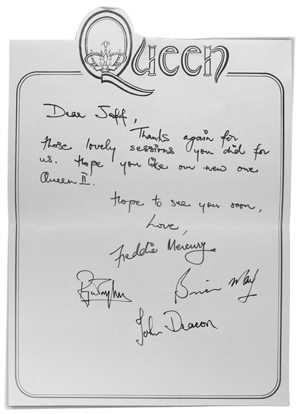 Queen
Dear Jeff,
Thanks again for
those lovely sessions you did for
us. Hope you like our new one
Queen II.
Hope to see you soon,
Love,
Freddie Mercury
Brian May
John Deacon